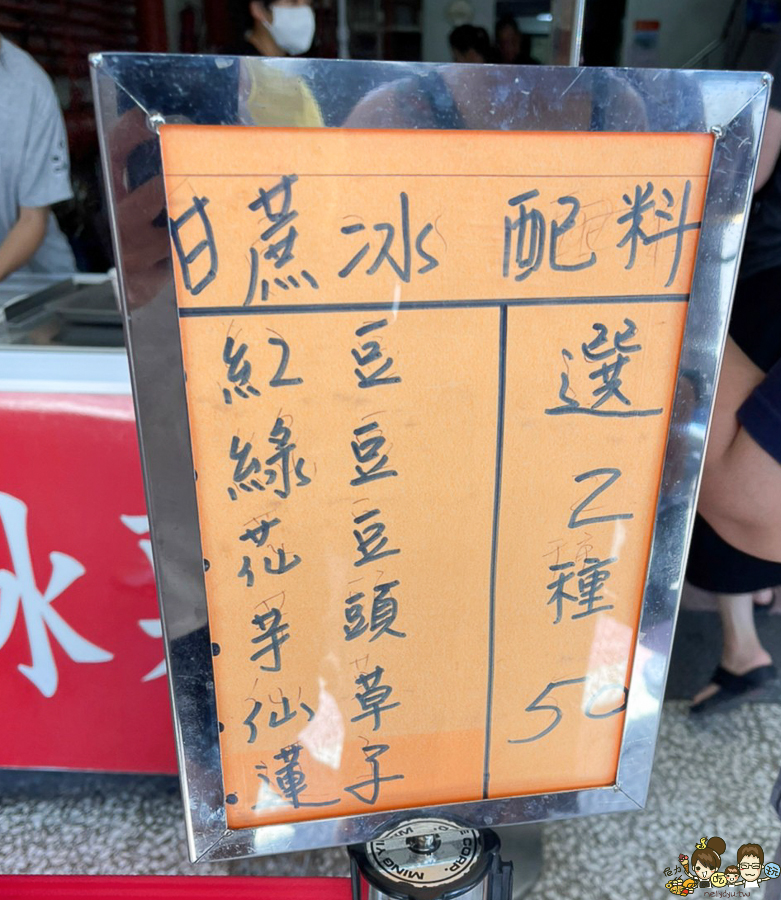 甘蔗冰 配料
紅豆
綠豆
花豆
芋頭
仙草
蓮子
選2種50
冰
MING YI
E CORP.
吃
玩
nellydyu.tw